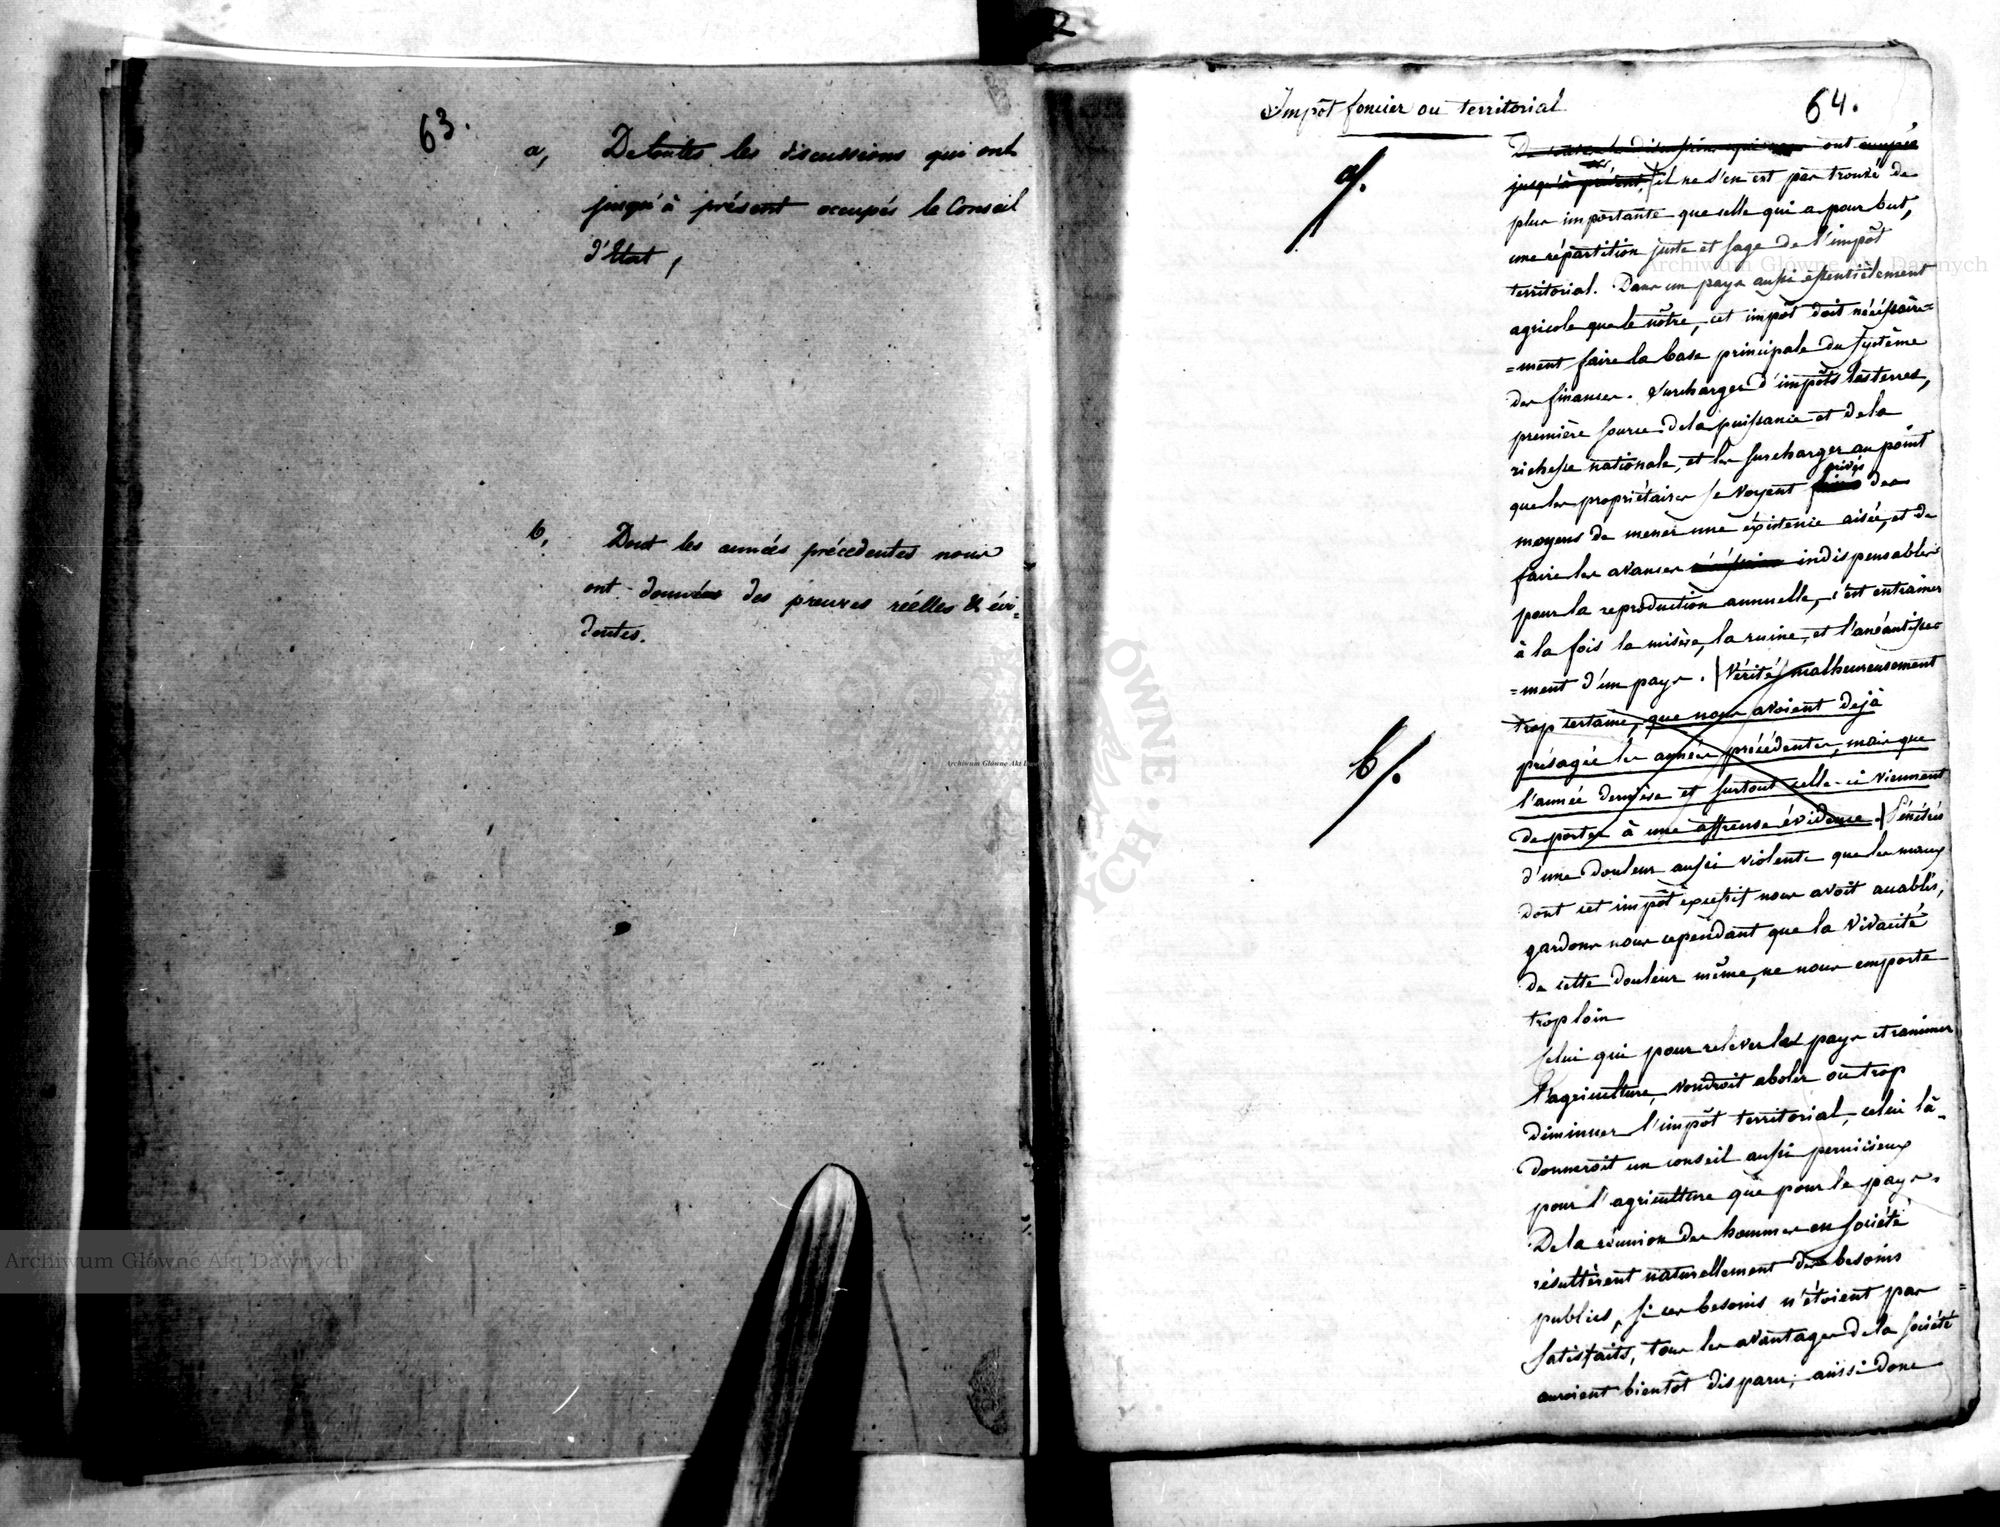 63.
a, De toutes les discussions qui ont
jusqu'à présent occupés le Conseil
d'Etat,
b, Dont les années précédentes nous
ont données des preuves réelles & évi=
dentes.
64.
Impôt foncier ou territorial
a/.
De toutes les discussions qui ont occupés
jusqu'à présent, il ne s'en est pas trouvé de
plus importante que celle qui a pour but,
une répartition juste et sage de l'impôt
territorial. Dans un pays aussi essentiellement
agricole que le nôtre, cet impôt doit nécéssaire=
=ment faire la base principale du système
des finances. Surcharger d'impôts les terres,
première source de la puissance et de la
richesse nationale, et les surcharger au point
que les propriétaires se voyent privés des
moyens de mener une éxistence aisée, et de
faire les avances indispensables
pour la reproduction annuelle, c'est entrainer
à la fois la misère, la ruine, et l'anéantisse=
=ment d'un pays. Vérité malheureusement
b/.
trop certaine, que nous avoient dejà
présagée les années précédentes, mais que
l'année dernière et surtout celle-ci viennent
de porter à une affreuse évidence. Pénétrés
d'une douleur aussi violente que les maux
dont cet impôt éxcessif nous avoit accablés,
gardons nous cependant que la vivacité
de cette douleur même, ne nous emporte
trop loin
Celui qui pour relever le pays et ranimer
l'agriculture, voudroit abolir ou trop
diminuer l'impôt territorial, celui là
donneroit un conseil aussi pernicieux
pour l'agriculture que pour le pays.
De la réunion des hommes en société
résultèrent naturellement des besoins
publics, si ces besoins n'étoient pas
satisfaits, tous les avantages de la société
auroient bientôt disparu; aussi donc
Archiwum Główne Akt Dawnych
Archiwum Główne Akt Dawnych
Archiwum Główne Akt Dawnych